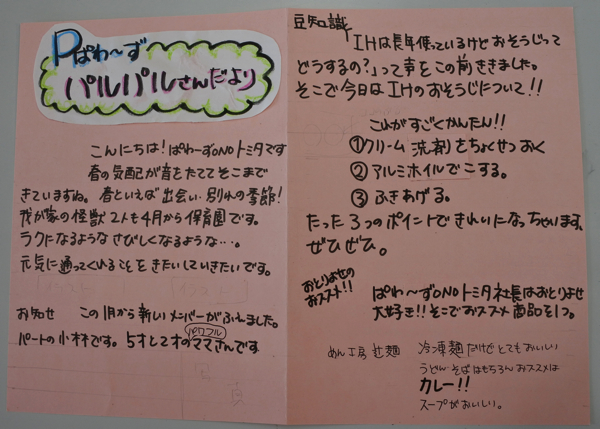 Pぱわ〜ず
パルパルさんだより
こんにちは!ぱわ〜ずONOトミタです
春の気配が音をたててそこまで
きていますね。春といえば出会い・別れの季節!
我が家の怪獣2人も4月から保育園です。
ラクになるような さびしくなるような…。
元気に通ってくれることをきたいしていきたいです。
お知せ この1月から新しいメンバーがふえました。
パートの小林です。5才と2才のパワフルママさんです
豆知識
IHは長年使っているけどおそうじって
どうするの?」って声をこの前ききました。
そこで今日はIHのおそうじについて!!
これがすごくかんたん!!
①クリーム洗剤をちょくせつおく
②アルミホイルでこする。
③ふきあげる。
たった3つのポイントできれいになっちゃいます。
ぜひぜひ。
おとりよせの
おススメ!!
ぱわ〜ずONOトミタ社長はおとりよせ
大好き!!そこでおススメ商品を1つ。
めん工房 辻麺 冷凍麺だけどとてもおいしい
うどん・そばはもちろんおススメは
カレー!!
スープがおいしい。